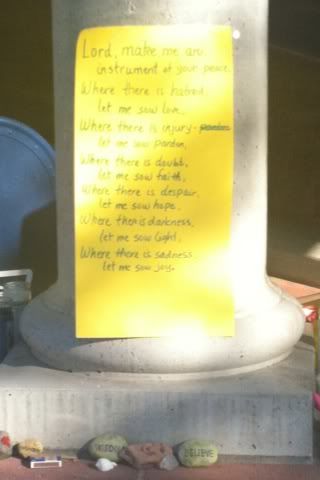 Lord, make me an
instrument of your peace.
Where there is hatred
let me sow love.
Where there is injury -
let me sow pardon,
Where there is doubt,
let me sow faith,
Where there is despair,
let me sow hope.
Where there is darkness,
let me sow light,
Where there is sadness
let me sow joy.
BELIEVE